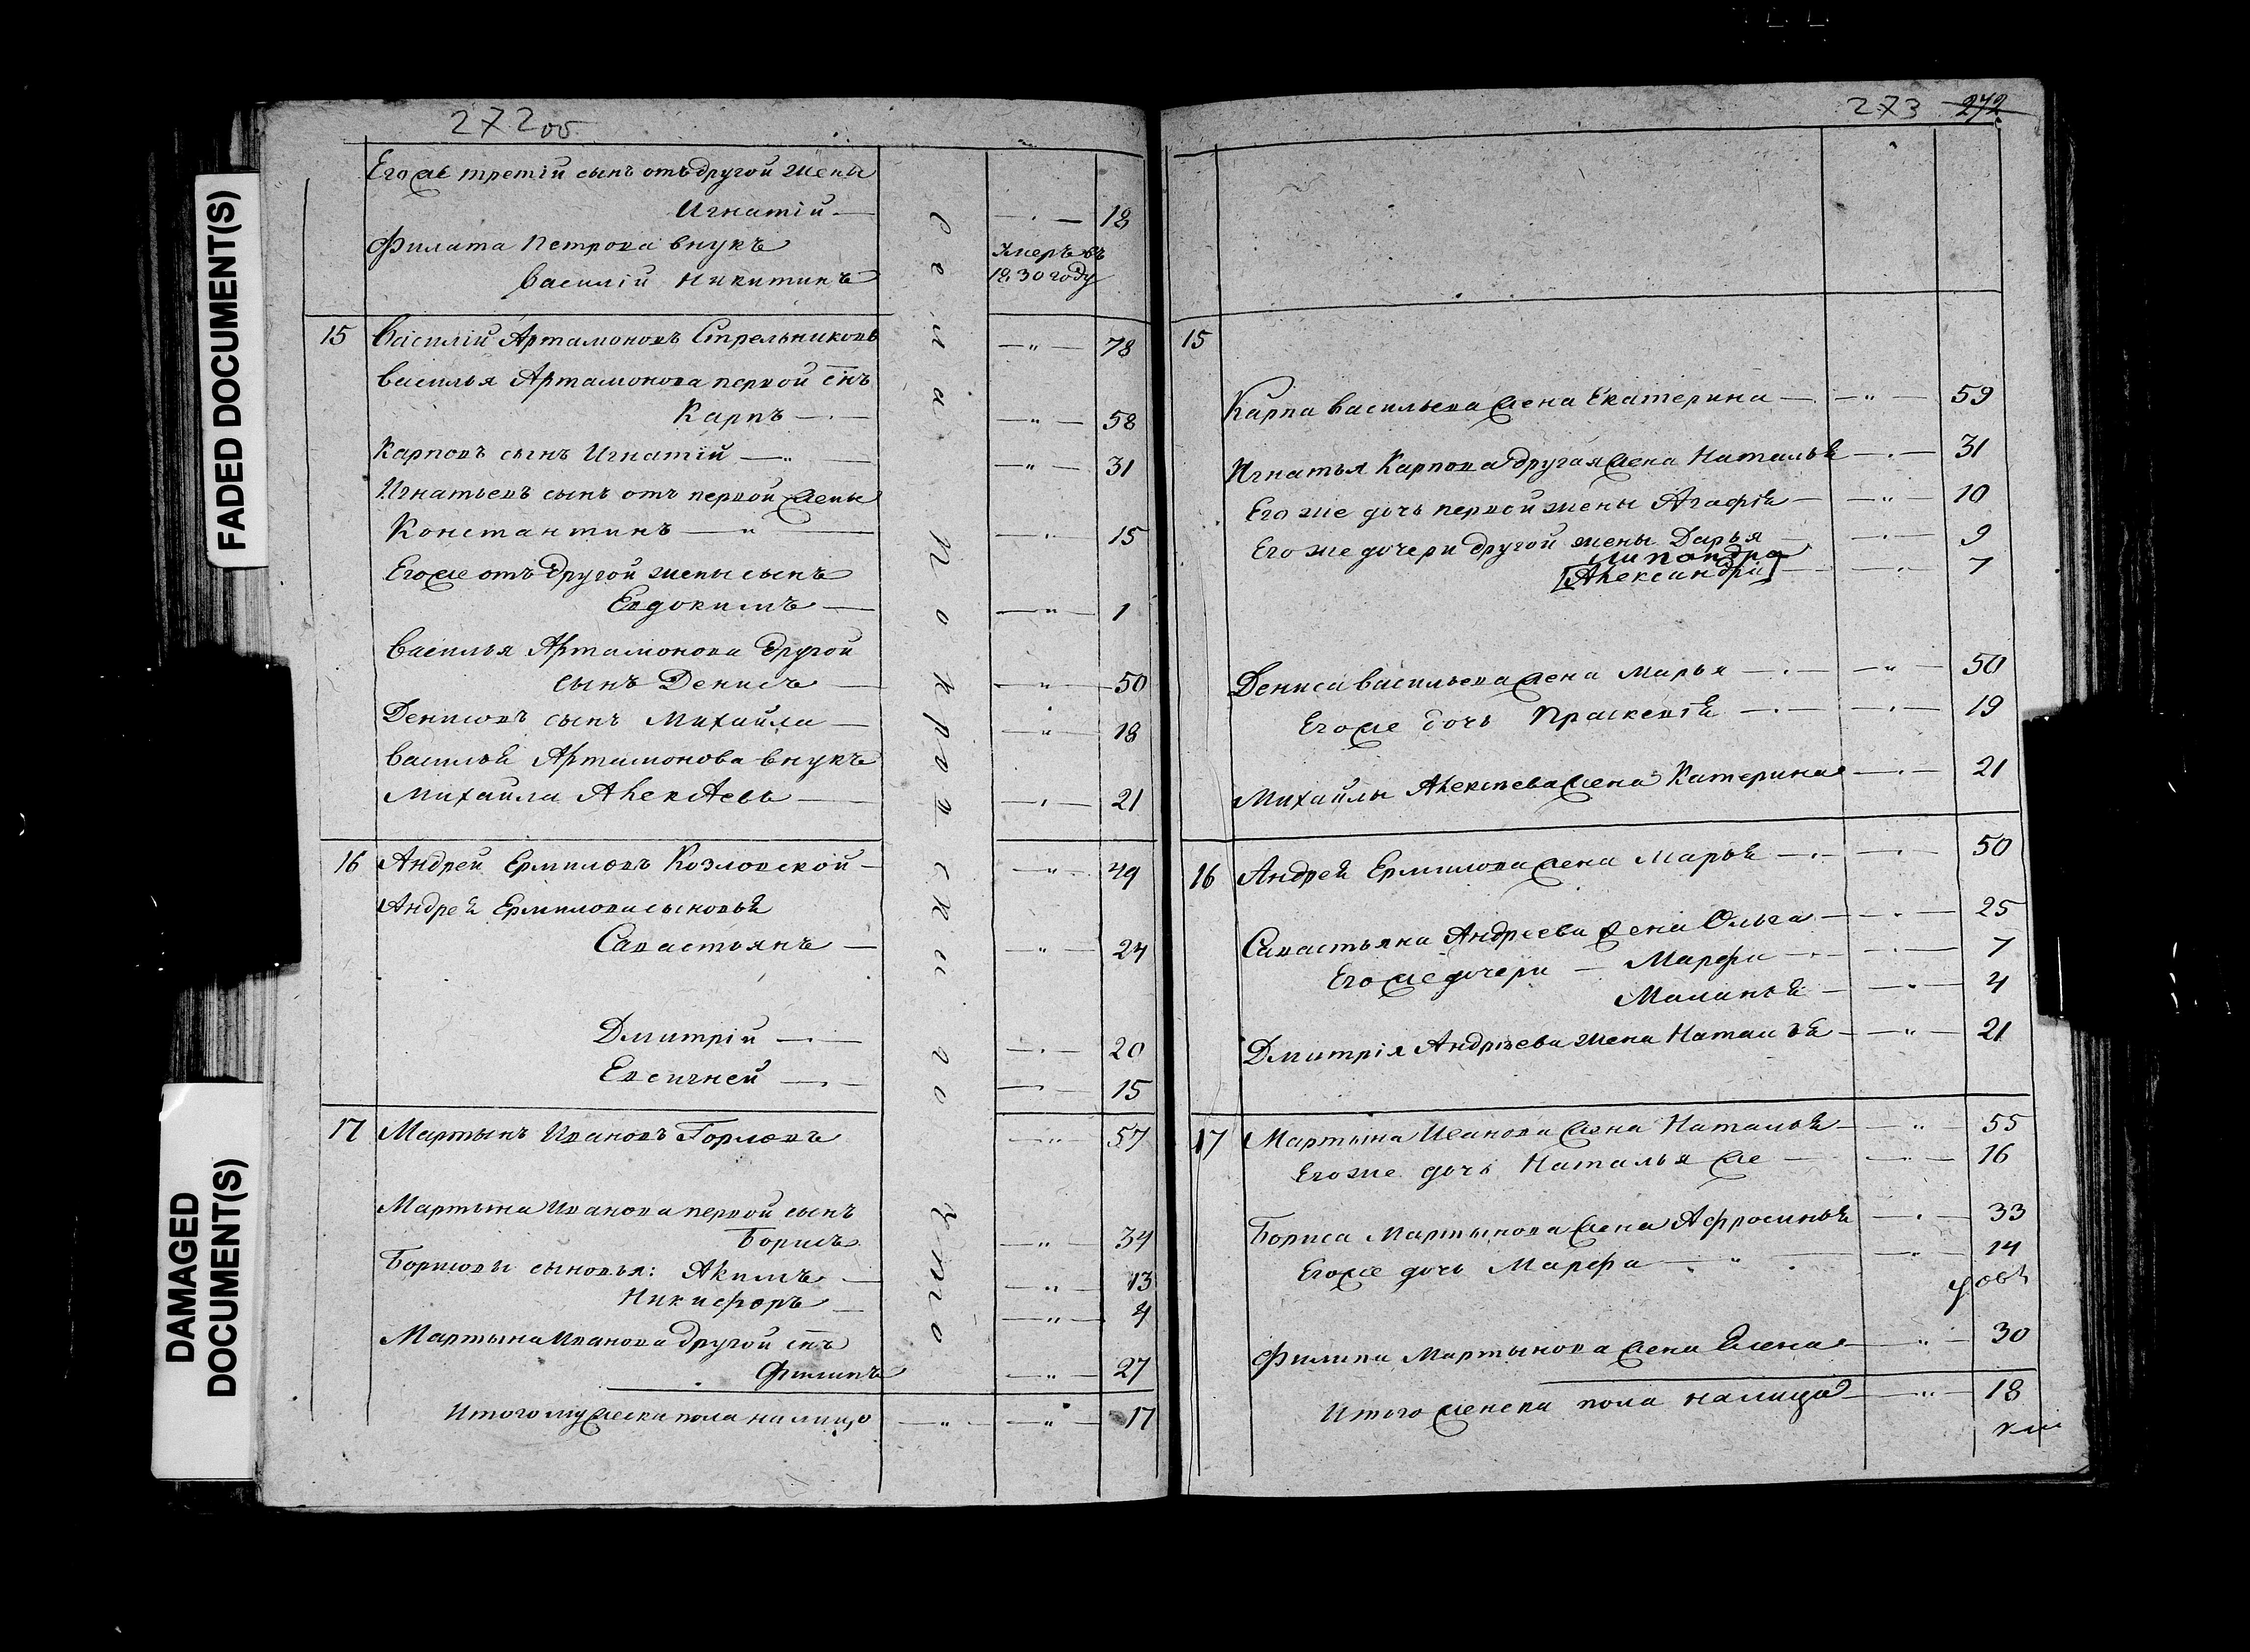 FADED DOCUMENT(S)
DAMAGED
DOCUMENT(S)
272об
Его же третій сынъ отъ другой жены
Игнатій — 18
Филата Петрова внукъ
Умеръ въ
Василій Никитинъ
1830 году
15 Василій Артамоновъ Стрельниковъ — " — 78
Василья Артамонова первой снъ
Карпъ — " — 58
Карповъ сынъ Игнатій — " — 31
Игнатьевъ сынъ отъ первой жены
Константинъ — " — 15
Его же отъ другой жены сынъ
Евдокимъ — " — 1
Василья Артамонова другой
сынъ Денисъ — " — 50
Денисовъ сынъ Михайла — " — 18
Василья Артамонова внукъ
Михайла Алексѣевъ — " — 21
16 Андрей Ермиловъ Козловской — " — 49
Андрея Ермилова сыновья
Савастьянъ — " — 24
Дмитрій — " — 20
Евсигней — " — 15
17 Мартынъ Ивановъ Горловъ — " — 57
Мартына Иванова первой сынъ
Борисъ — " — 34
Борисовы сыновья: Акимъ — " — 13
Никифоръ — " — 4
Мартына Иванова другой снъ
Филипъ — " — 27
Итого мужеска пола на лицо — " — " — 17
273 272
15
Карпа Васильева жена Екатерина — " — 59
Игнатья Карпова другая жена Наталья — " — 31
Его же дочь первой жены Агафія — " — 10
Его же дочери другой жены Дарья — " — 9
[Александра] — " — 7
Дениса Васильева жена Марья — " — 50
Его же дочь Праскевія — " — 19
Михайлы Алексѣева жена Катерина — " — 21
16 Андрея Ермилова жена Марья — " — 50
Савастьяна Андреева жена Ольга — " — 25
Его же дочери — Марфа — " — 7
Маланья — " — 4
Дмитрія Андрѣева жена Наталья — " — 21
17 Мартына Иванова жена Наталья — " — 55
Его же дочь Наталья же — " — 16
Бориса Мартынова жена Афросинья — " — 33
Его же дочь Марфа — " — 14
Филипа Мартынова жена Елена — " — 30
Итого женска пола налицо — " — 18